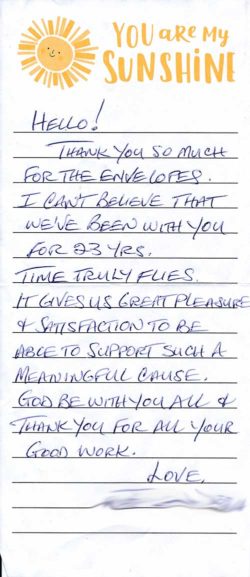 YOU are my
SUNSHINE
HELLO!
THANK YOU SO MUCH
FOR THE ENVELOPES.
I CAN'T BELIEVE THAT
WE'VE BEEN WITH YOU
FOR 23 YRS.
TIME TRULY FLIES.
IT GIVES US GREAT PLEASURE
& SATISFACTION TO BE
ABLE TO SUPPORT SUCH A
MEANINGFUL CAUSE.
GOD BE WITH YOU ALL &
THANK YOU FOR ALL YOUR
GOOD WORK.
LOVE,